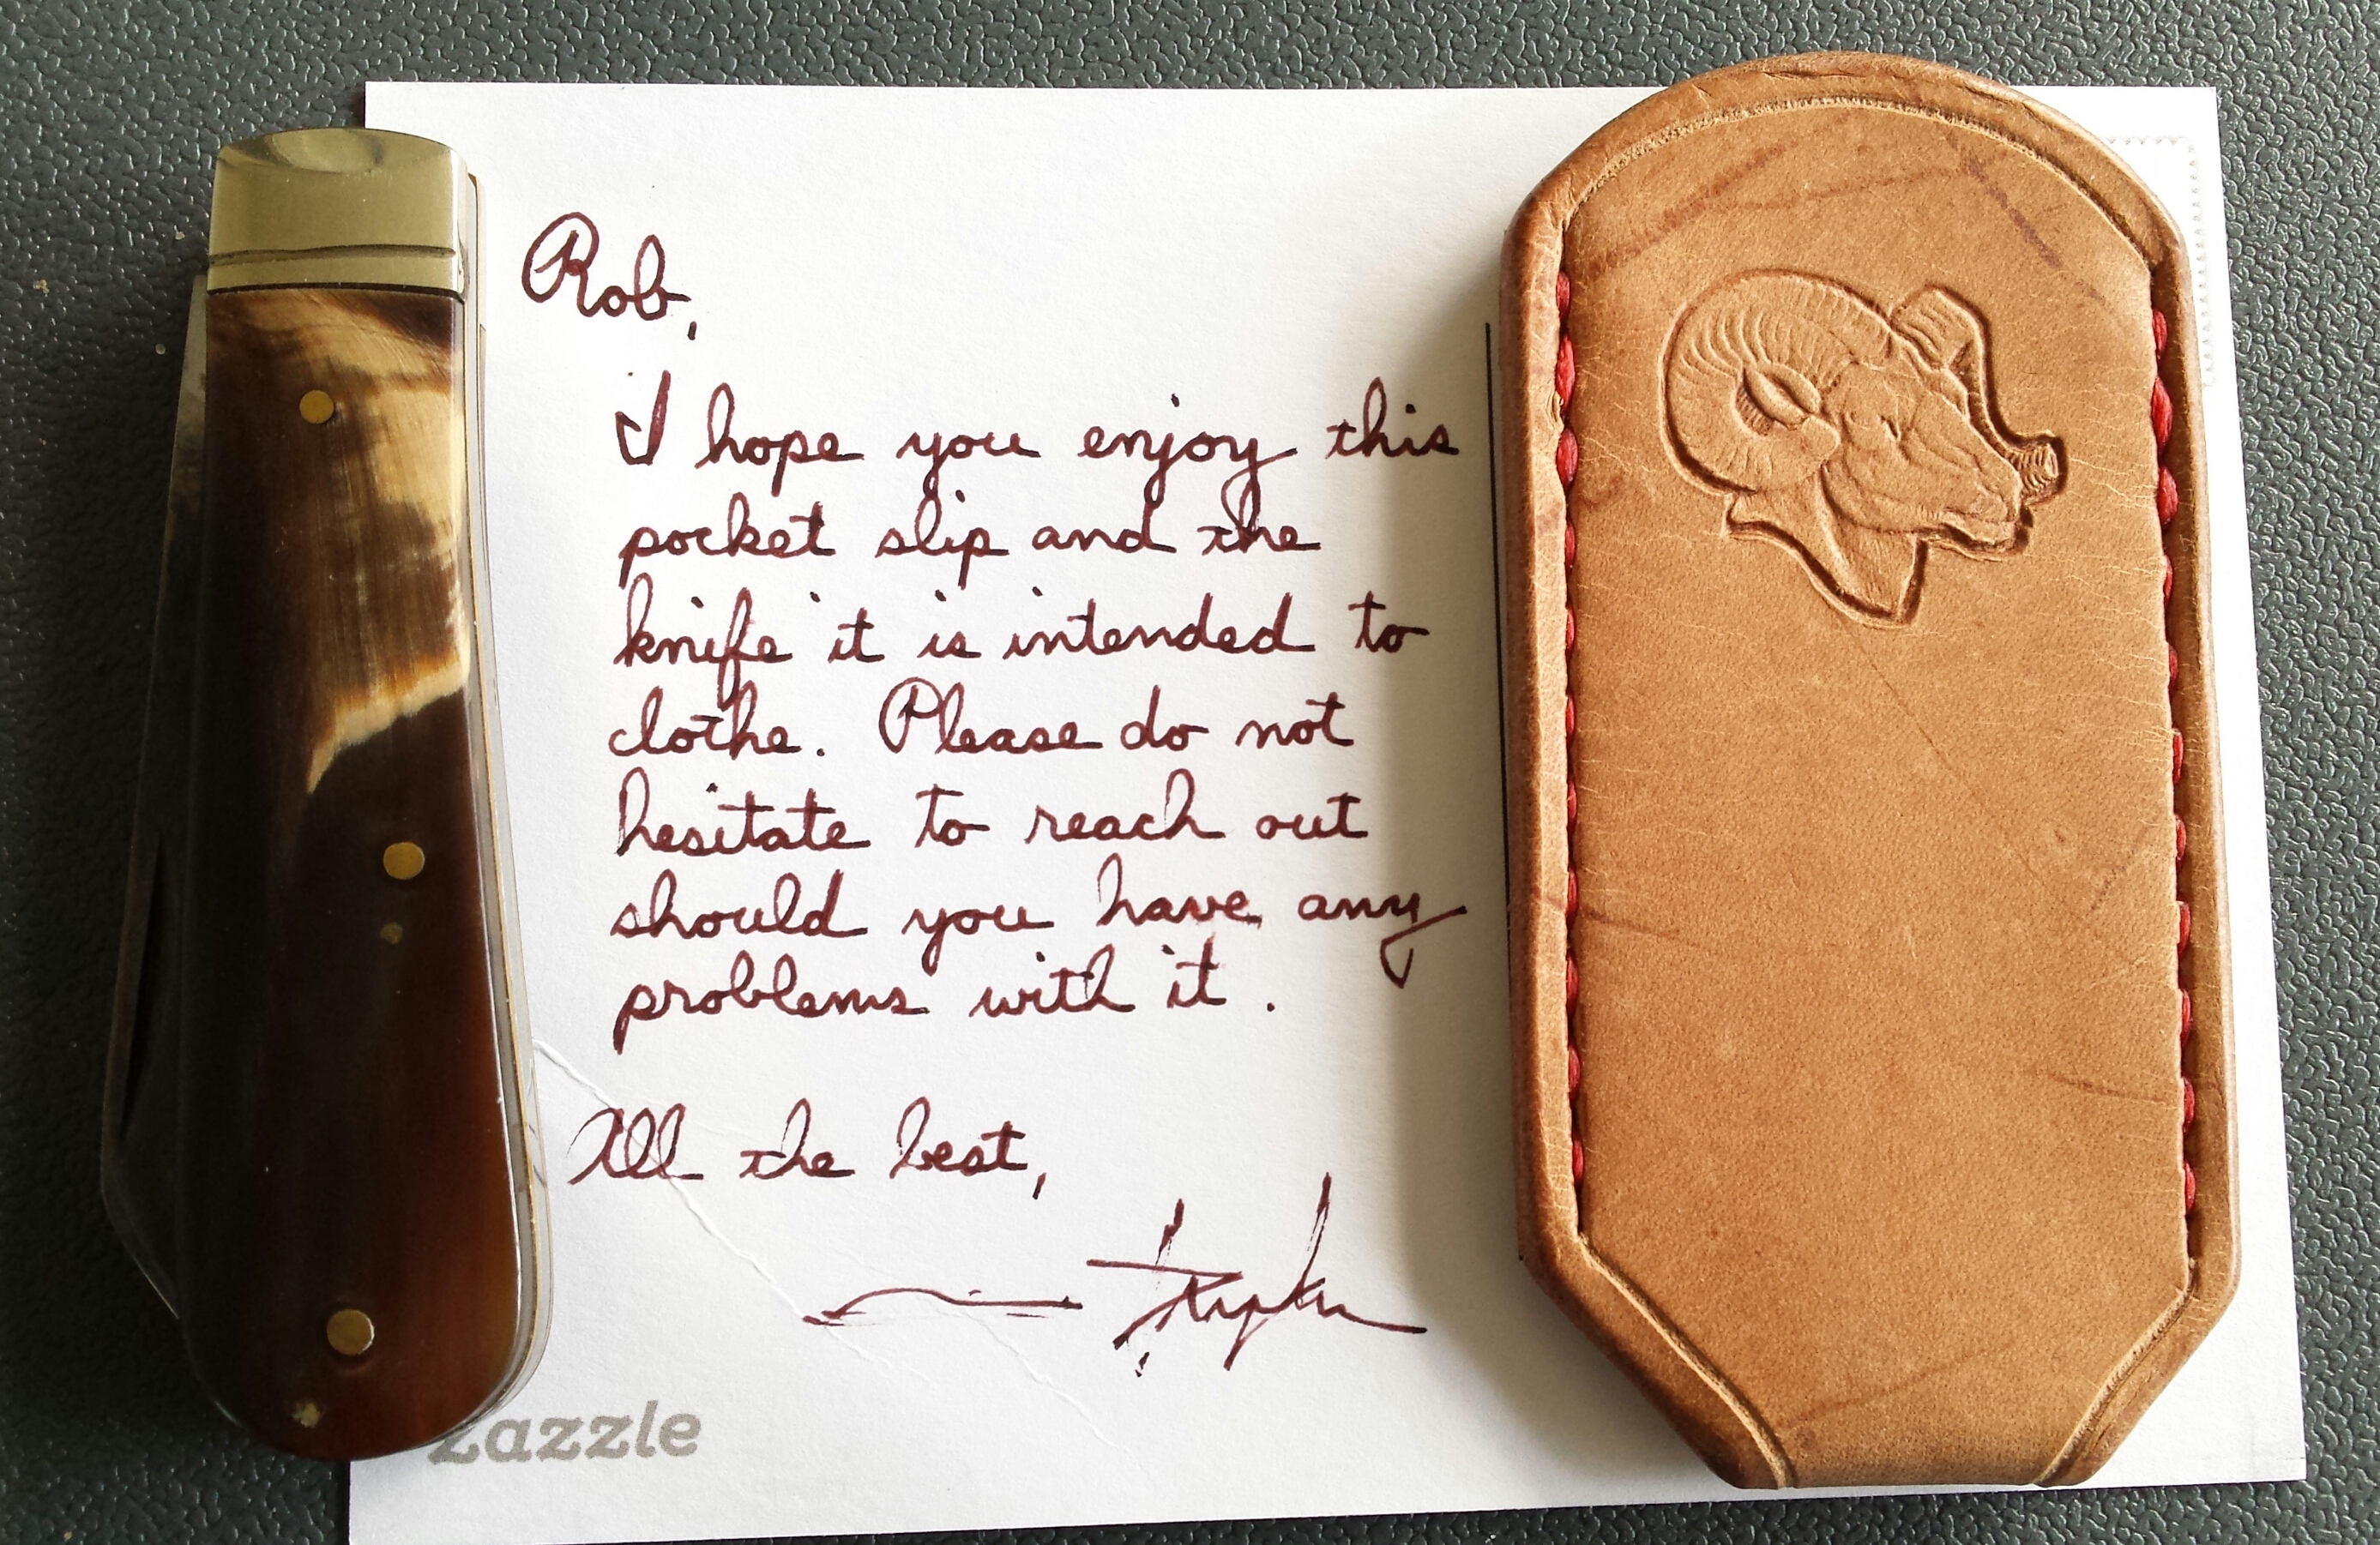 Rob,
I hope you enjoy this
pocket slip and the
knife it is intended to
clothe. Please do not
hesitate to reach out
should you have any
problems with it.
All the best,
zazzle